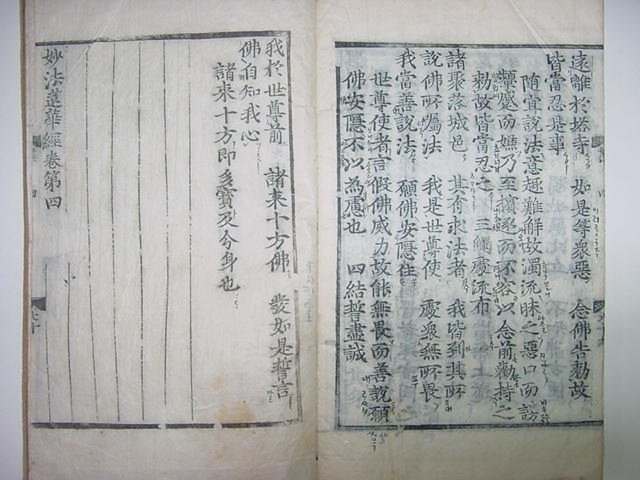 遠離於塔寺 如是等衆惡 念佛告勅故
皆當忍是事
隨宜說法意趣難解故濁流昧之惡口而謗
顰蹙而嫵乃至擯逐而不容以念前勸持之
勅故皆當忍之 三觸處流布
諸聚落城邑 其有求法者 我皆到其所
說佛所囑法 我是世尊使 處衆無所畏
我當善說法 願佛安隱住
世尊使者言假佛威力故能無畏而善說願
佛安隱不以為慮也 四結誓盡誠
我於世尊前 諸来十方佛 發如是誓言
佛自知我心
諸来十方即多寶及分身也
妙法蓮華經卷第四